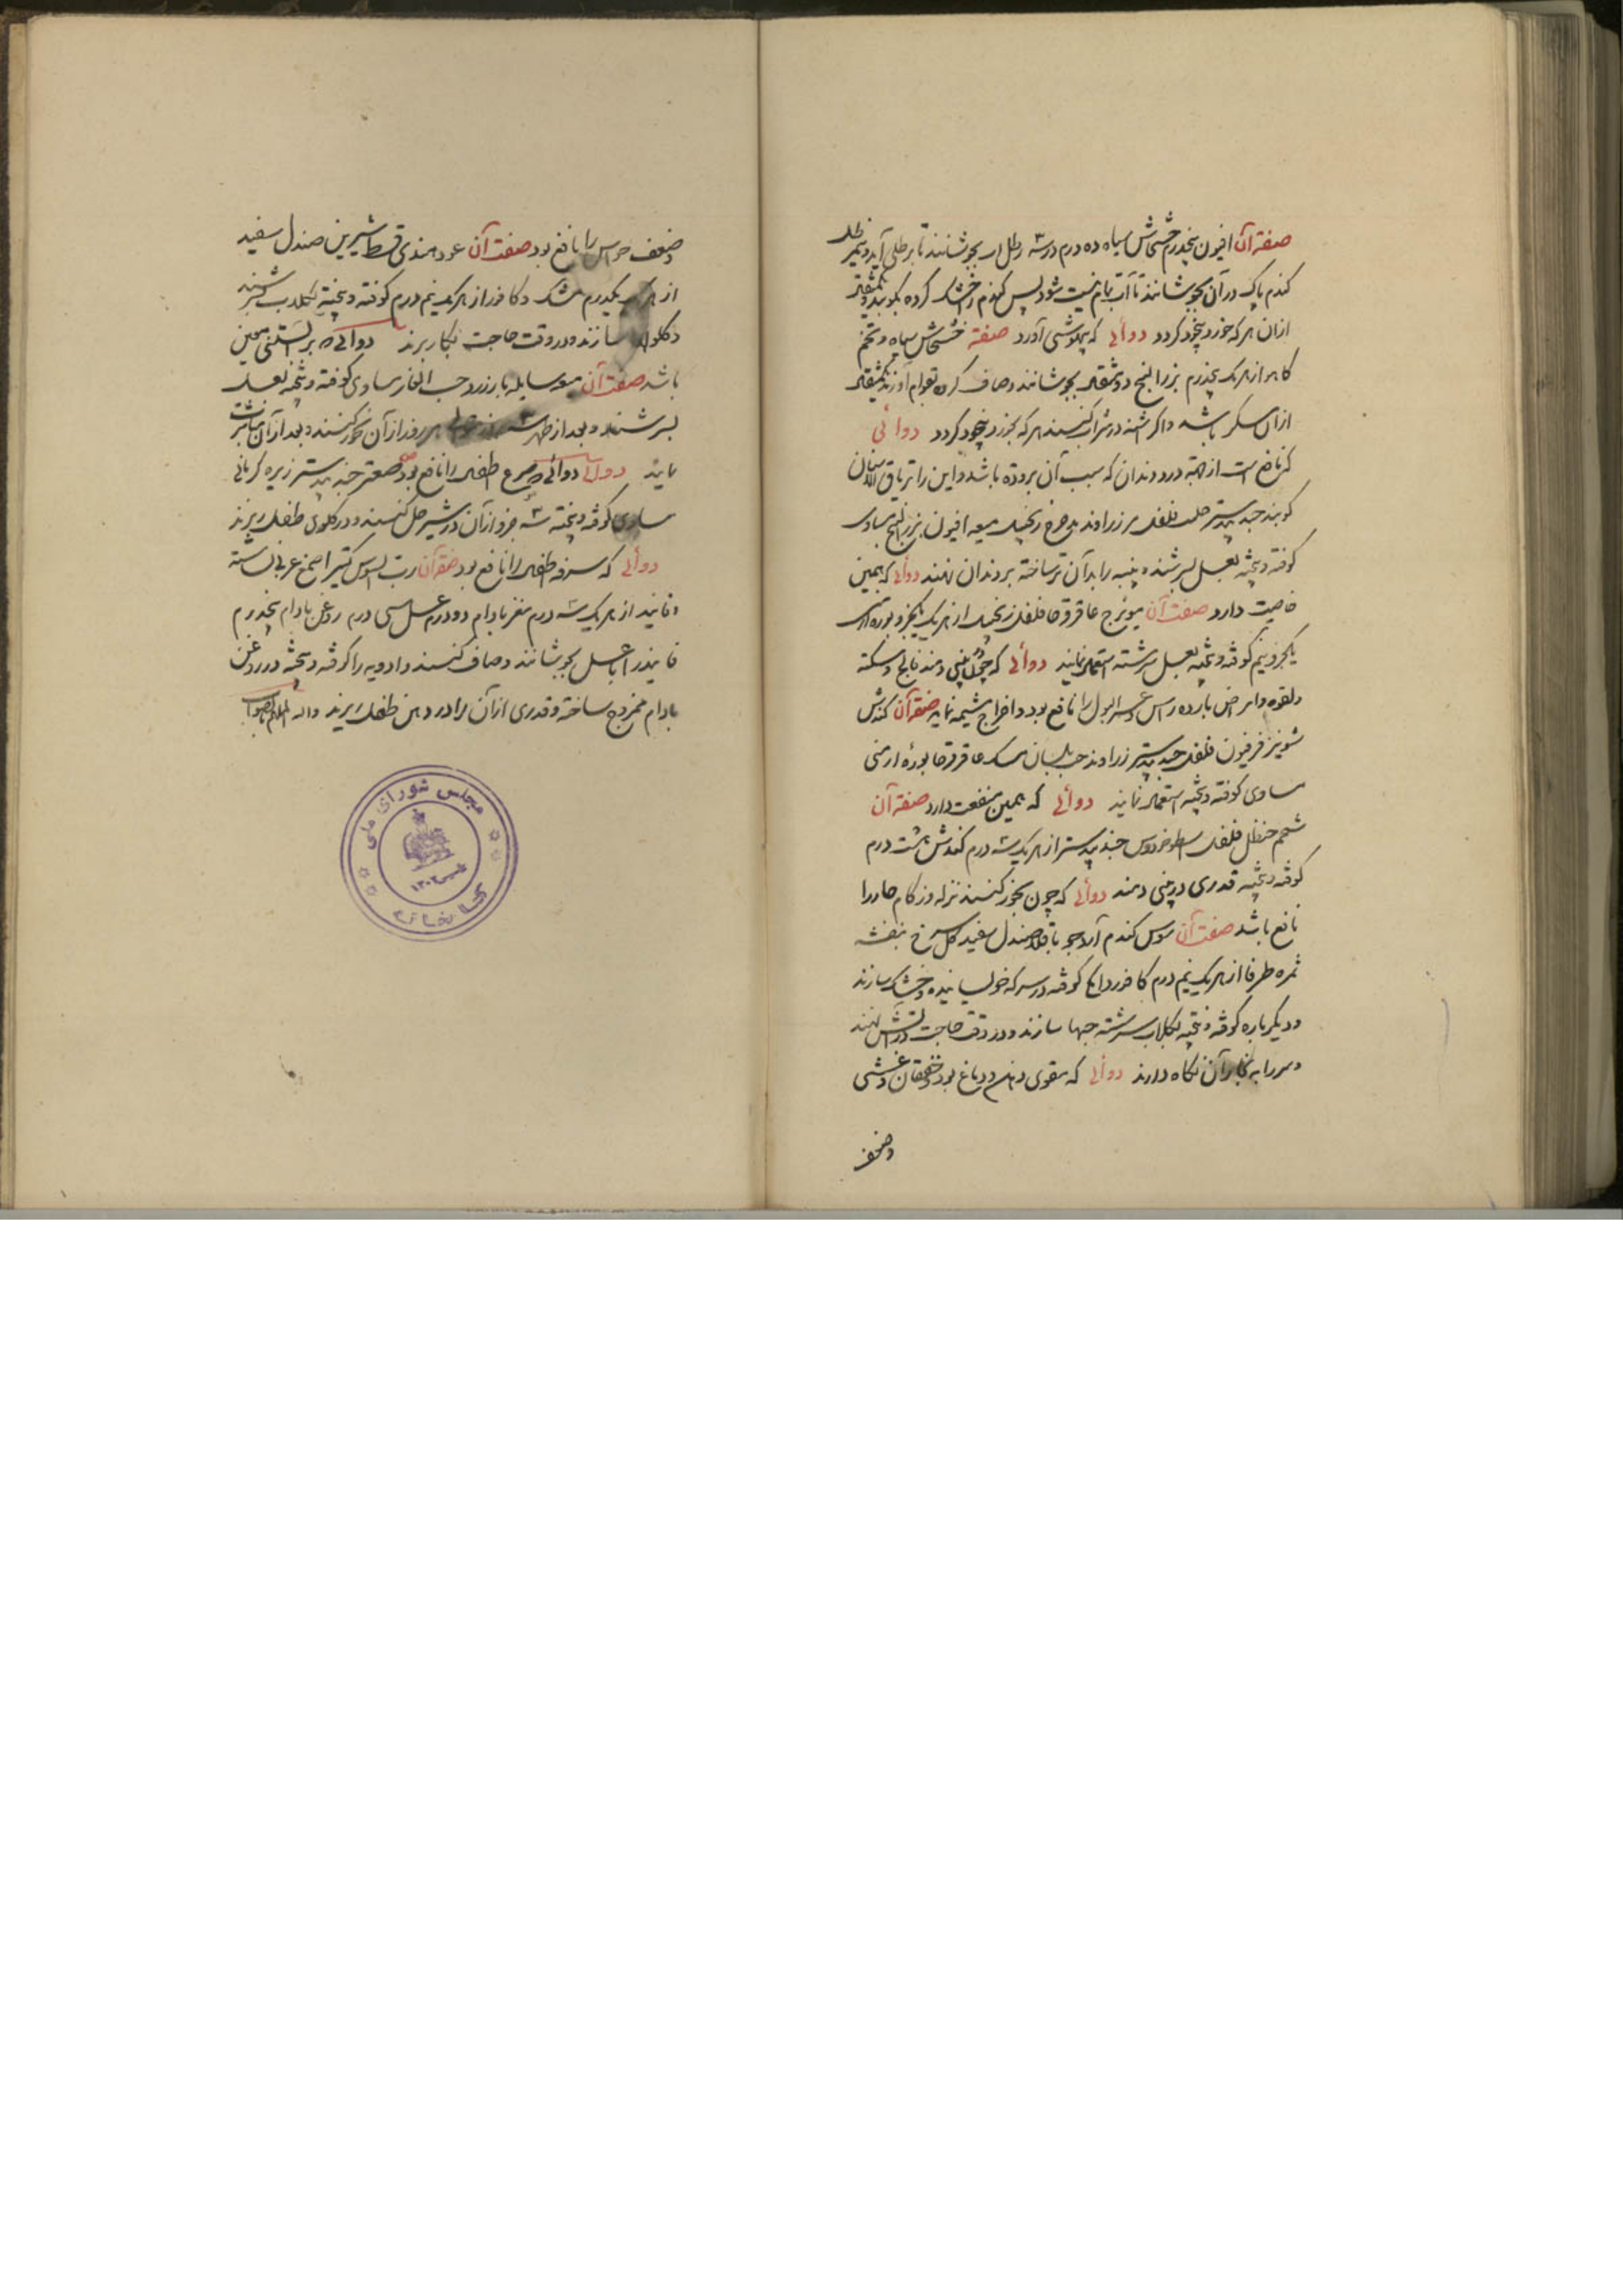 صفة آن افیون پنجدرم خشخاش سیاه ده درم در سه رطل آب بجوشانند تا برطلی آید و نیم رطل
کندم پاک در آن بجوشانند تا آب تمام نیست شود پس کندم را خشک کرده بکوبند و یکمثقال
ازان هر که خورد بیخود کردد دوائی که بیهوشی آورد صفة خشخاش سیاه و تخم
کاهو از هر یک پنجدرم بزرالبنج دو مثقال بجوشانند و صاف کرده بقوام آورند یکمثقال
ازان مسکر باشد و اکر در شراب کنند هر که بخورد بیخود کردد دوائی
که نافع است از جهة درد دندان که سبب آن برودة باشد و این را تریاق الاسنان
کویند جندبیدستر حلتیت فلفل زراوند مدحرج زنجبیل میعه افیون بزرالبنج مساوی
کوفته و بیخته بعسل بسرشند و پنبه را بدآن تر ساخته بر دندان نهند دوائی که همین
خاصیت دارد صفت آن مویزج عاقرقرحا فلفل زنجبیل از هر یک یکجزو بوره ارمنی
یکجزو نیم کوفته و بیخته بعسل سرشته استعمال نمایند دوائی که چون در بینی دمند فالج و سکته
و لقوه و امراض بارده راس و عسر البول را نافع بود و اخراج مشیمه نماید صفة آن کندش
شونیز فرفیون فلفل جندبیدستر زراوند حب بلسان مسک عاقرقرحا بورۀ ارمنی
مساوی کوفته و بیخته استعمال نمایند دوائی که همین منفعت دارد صفة آن
شحم حنظل فلفل اسطوخودوس جندبیدستر از هر یک سه درم کندش هشت درم
کوفته و بیخته قدری در بینی دمند دوائی که چون بخور کنند نزله و زکام حار را
نافع باشد صفت آن سبوس کندم آرد جو باقلا صندل سفید کل سرخ بنفشه
ثمره طرفا از هر یک نیم درم کافور دانکی کوفته در سرکه خیسانیده و خشک سازند
و دیکر باره کوفته و بیخته بکلاب سرشته حبها سازند و در وقت حاجت در آتش نهند
و سر را به بخار آن نکاه دارند دوائی که مقوی ذهن و دماغ بود و خفقان و غشی
وضعف
وضعف حواس را نافع بود صفت آن عود هندی قسط شیرین صندل سفید
از هر یک یکدرم مشک و کافور از هر یک نیم درم کوفته و بیخته بکلاب بسرشند
و کلوله سازند و در وقت حاجت بکار برند دوائی که بر آبستنی معین
باشد صفت آن میعه سایله بارزد حب الغار مساوی کوفته و بیخته بعسل
بسرشند و بعد از طهر سه روز هر روز از آن بخور کنند و بعد از آن مباشرت
نمایند دوائی دوائی که صرع طفل را نافع بود صفت صعتر جندبیدستر زیره کرمانی
مساوی کوفته و بیخته سه جزو از آن در شیر حل کنند و در کلوی طفل ریزند
دوائی که سرفه طفل را نافع بود صفة آن رب السوس کتیرا صمغ عربی نشاسته
و فانید از هر یک سه درم مغز بادام دو درم عسل سی درم روغن بادام پنجدرم
فانید را با عسل بجوشانند و صاف کنند و ادویه را کوفته و بیخته در روغن
بادام ممزوج ساخته و قدری از آن را در دهن طفل ریزند والله اعلم بالصواب
مجلس شورای ملی
تاسیس ۱۳۰۲
کتابخانه